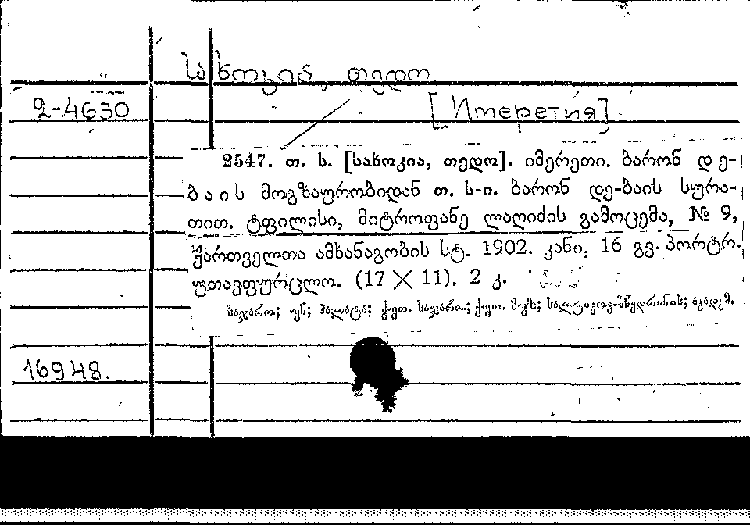 სახოკია, თედო
2-4630
[Имеретия]
2547. თ. ს. [სახოკია, თედო]. იმერეთი. ბარონ დე-
ბაის მოგზაურობიდან თ. ს-ი. ბარონ დე-ბაის სურა-
თით. ტფილისი, მიტროფანე ლაღიძის გამოცემა, № 9,
ქართველთა ამხანაგობის სტ. 1902. კანი, 16 გვ. პორტრ.
უთავფურცლო. (17 × 11). 2 კ.
საჯარო;
16948.